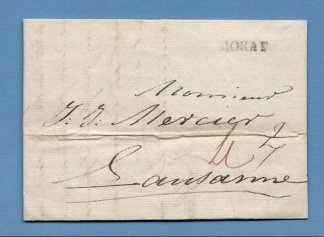 MORAT
Monsieur
J. J. Mercier
4
Lausanne